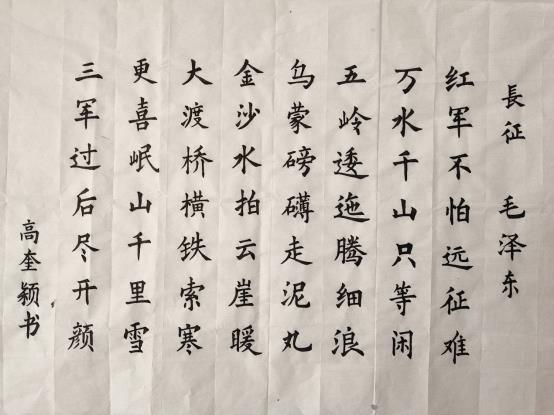 長征 毛泽东
红军不怕远征难
万水千山只等闲
五岭逶迤腾细浪
乌蒙磅礴走泥丸
金沙水拍云崖暖
大渡桥横铁索寒
更喜岷山千里雪
三军过后尽开颜
高奎颖书